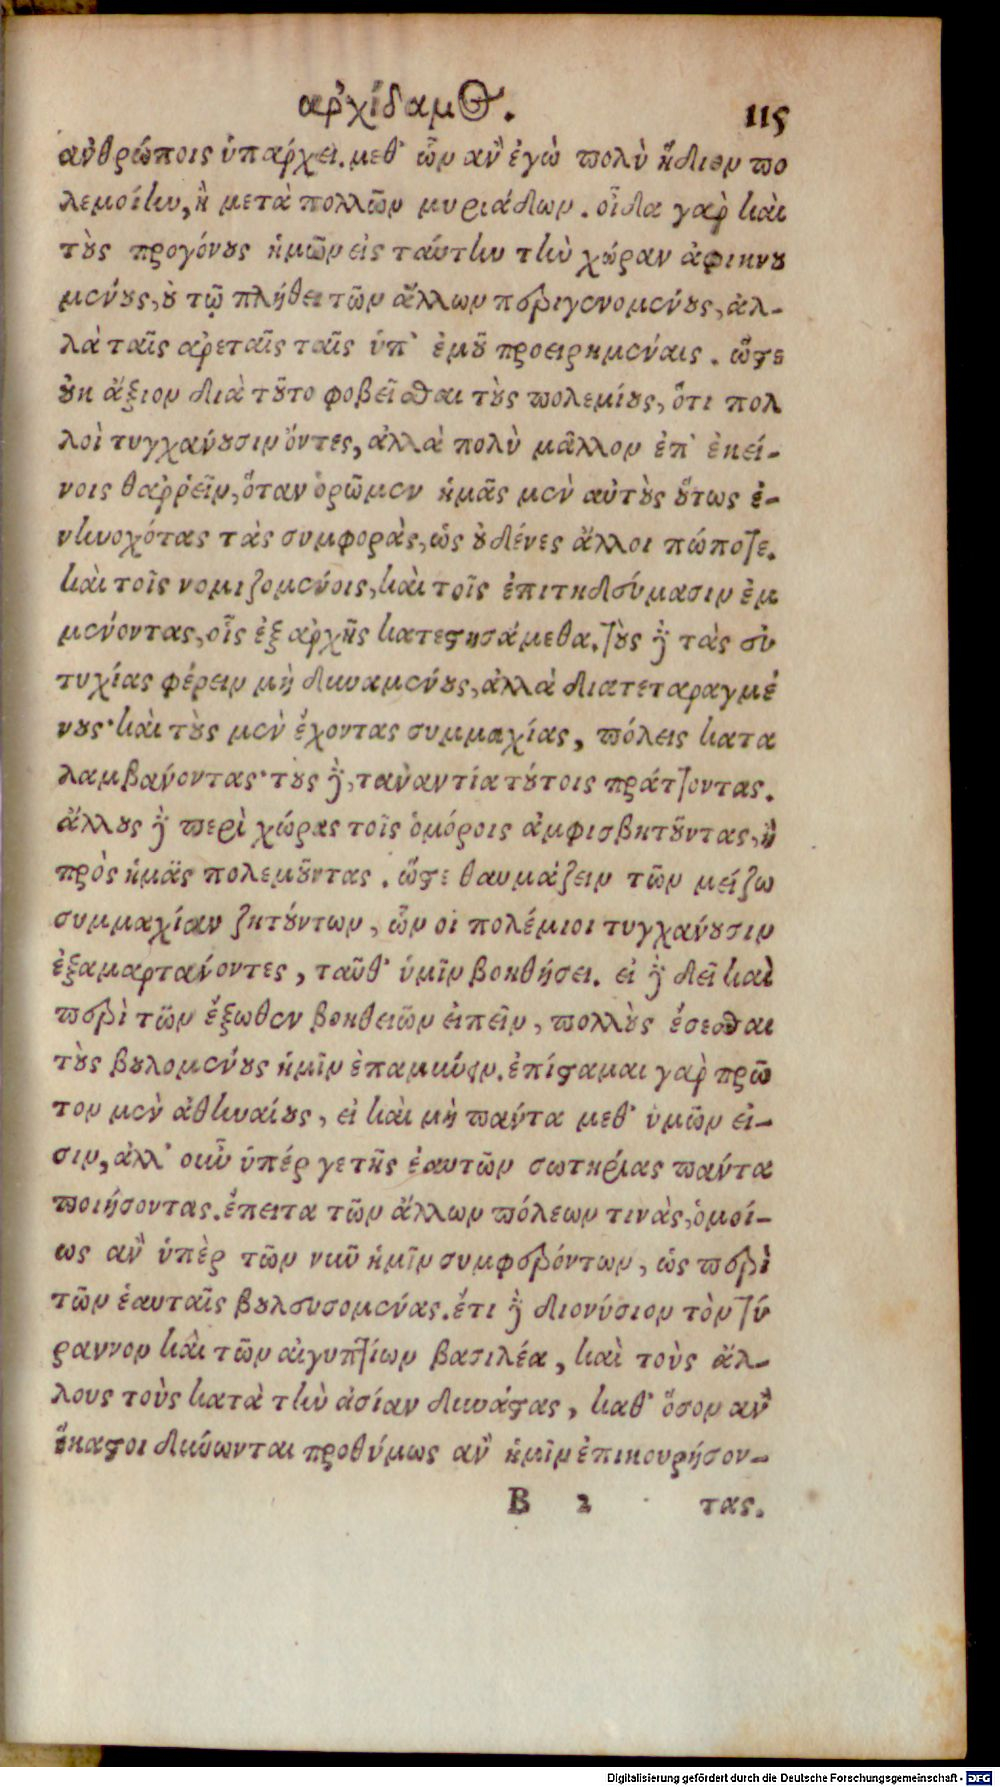 αρχίδαμος. 115
ανθρώποις ὑπάρχει. μεθ᾽ ὧν ἂν ἐγὼ πολὺ ἥδιον πο
λεμοίην, ἢ μετὰ πολλῶν μυριάδων. οἶδα γὰρ καὶ
τοὺς προγόνους ἡμῶν εἰς ταύτην τὴν χώραν ἀφικνου
μένους, οὐ τῷ πλήθει τῶν ἄλλων περιγενομένους, ἀλ-
λὰ ταῖς ἀρεταῖς ταῖς ὑπ᾽ ἐμοῦ προειρημέναις. ὥστε
οὐκ ἄξιον διὰ τοῦτο φοβεῖσθαι τοὺς πολεμίους, ὅτι πολ
λοὶ τυγχάνουσιν ὄντες, ἀλλὰ πολὺ μᾶλλον ἐπ᾽ ἐκεί-
νοις θαῤῥεῖν, ὅταν ὁρῶμεν ἡμᾶς μὲν αὐτοὺς οὕτως ἐ-
νηνοχότας τὰς συμφορὰς, ὡς οὐδένες ἄλλοι πώποτε.
καὶ τοῖς νομιζομένοις, καὶ τοῖς ἐπιτηδεύμασιν ἐμ
μένοντας, οἷς ἐξ ἀρχῆς κατεστησάμεθα. τοὺς δὲ τὰς εὐ
τυχίας φέρειν μὴ δυναμένους, ἀλλὰ διατεταραγμέ
νους· καὶ τοὺς μὲν ἔχοντας συμμαχίας, πόλεις κατα
λαμβάνοντας· τοὺς δὲ, τἀναντία τούτοις πράττοντας.
ἄλλους δὲ περὶ χώρας τοῖς ὁμόροις ἀμφισβητοῦντας, ἢ
πρὸς ἡμᾶς πολεμοῦντας. ὥστε θαυμάζειν τῶν μείζω
συμμαχίαν ζητούντων, ὧν οἱ πολέμιοι τυγχάνουσιν
ἐξαμαρτάνοντες, ταῦθ᾽ ὑμῖν βοηθήσει. εἰ δὲ δεῖ καὶ
περὶ τῶν ἔξωθεν βοηθειῶν εἰπεῖν, πολλοὺς ἔσεσθαι
τοὺς βουλομένους ἡμῖν ἐπαμύνειν. ἐπίσταμαι γὰρ πρῶ
τον μὲν ἀθηναίους, εἰ καὶ μὴ πάντα μεθ᾽ ὑμῶν εἰ-
σιν, ἀλλ᾽ οὖν ὑπέρ γε τῆς ἑαυτῶν σωτηρίας πάντα
ποιήσοντας. ἔπειτα τῶν ἄλλων πόλεων τινὰς, ὁμοί-
ως ἂν ὑπὲρ τῶν νῦν ἡμῖν συμφερόντων, ὡς περὶ
τῶν ἑαυταῖς βουλευσομένας. ἔτι δὲ διονύσιον τὸν τύ
ραννον καὶ τῶν αἰγυπτίων βασιλέα, καὶ τοὺς ἄλ-
λους τοὺς κατὰ τὴν ἀσίαν δυνάστας, καθ᾽ ὅσον ἂν
ἕκαστοι δύνωνται προθύμως ἂν ἡμῖν ἐπικουρήσον-
B 2 τας.
Digitalisierung gefördert durch die Deutsche Forschungsgemeinschaft - DFG